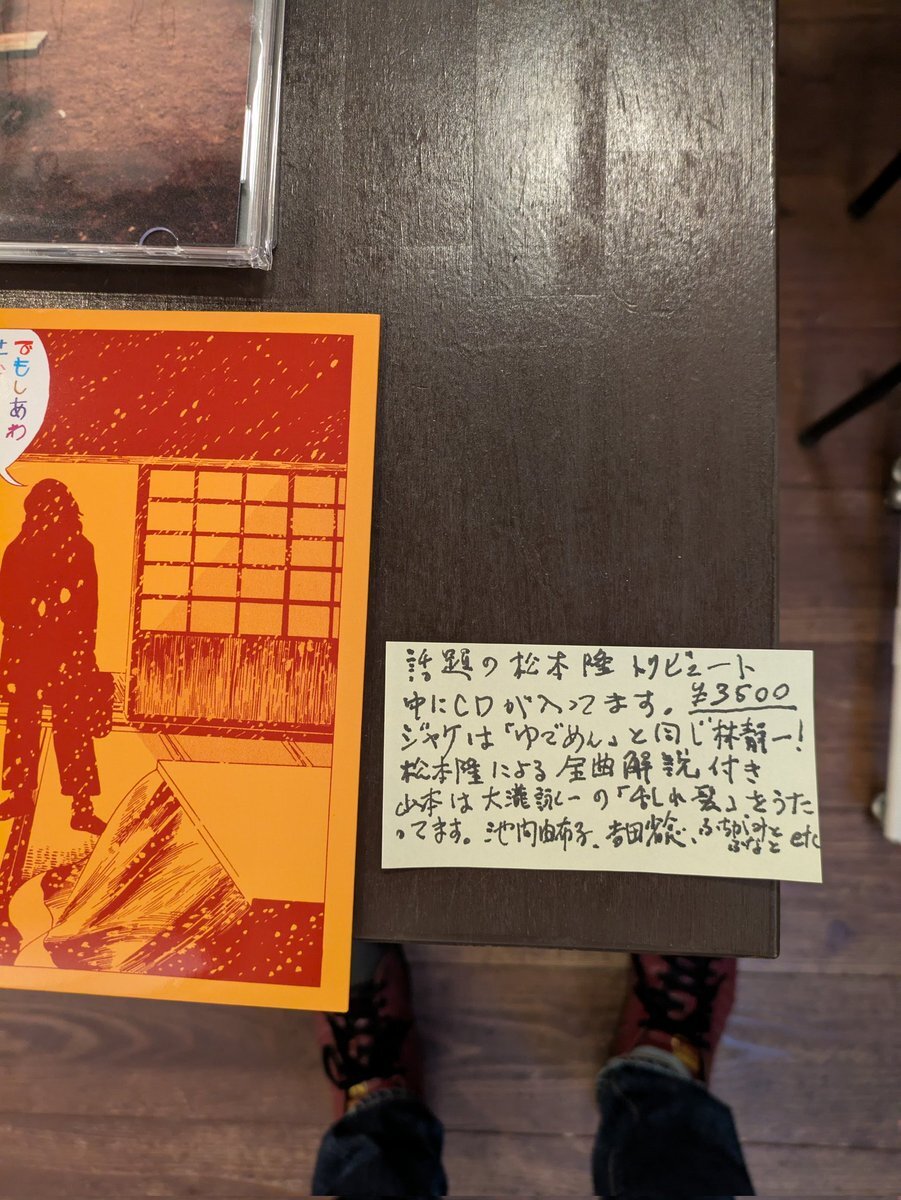 でもしあわ
せな
話題の松本隆トリビュート
中にCDが入ってます。¥3500
ジャケは「ゆでめん」と同じ林静一!
松本隆による全曲解説付き
山本は大瀧詠一の「乱れ髪」をうた
ってます。池間由布子、吉田省念、ふちがみと
ふなと etc